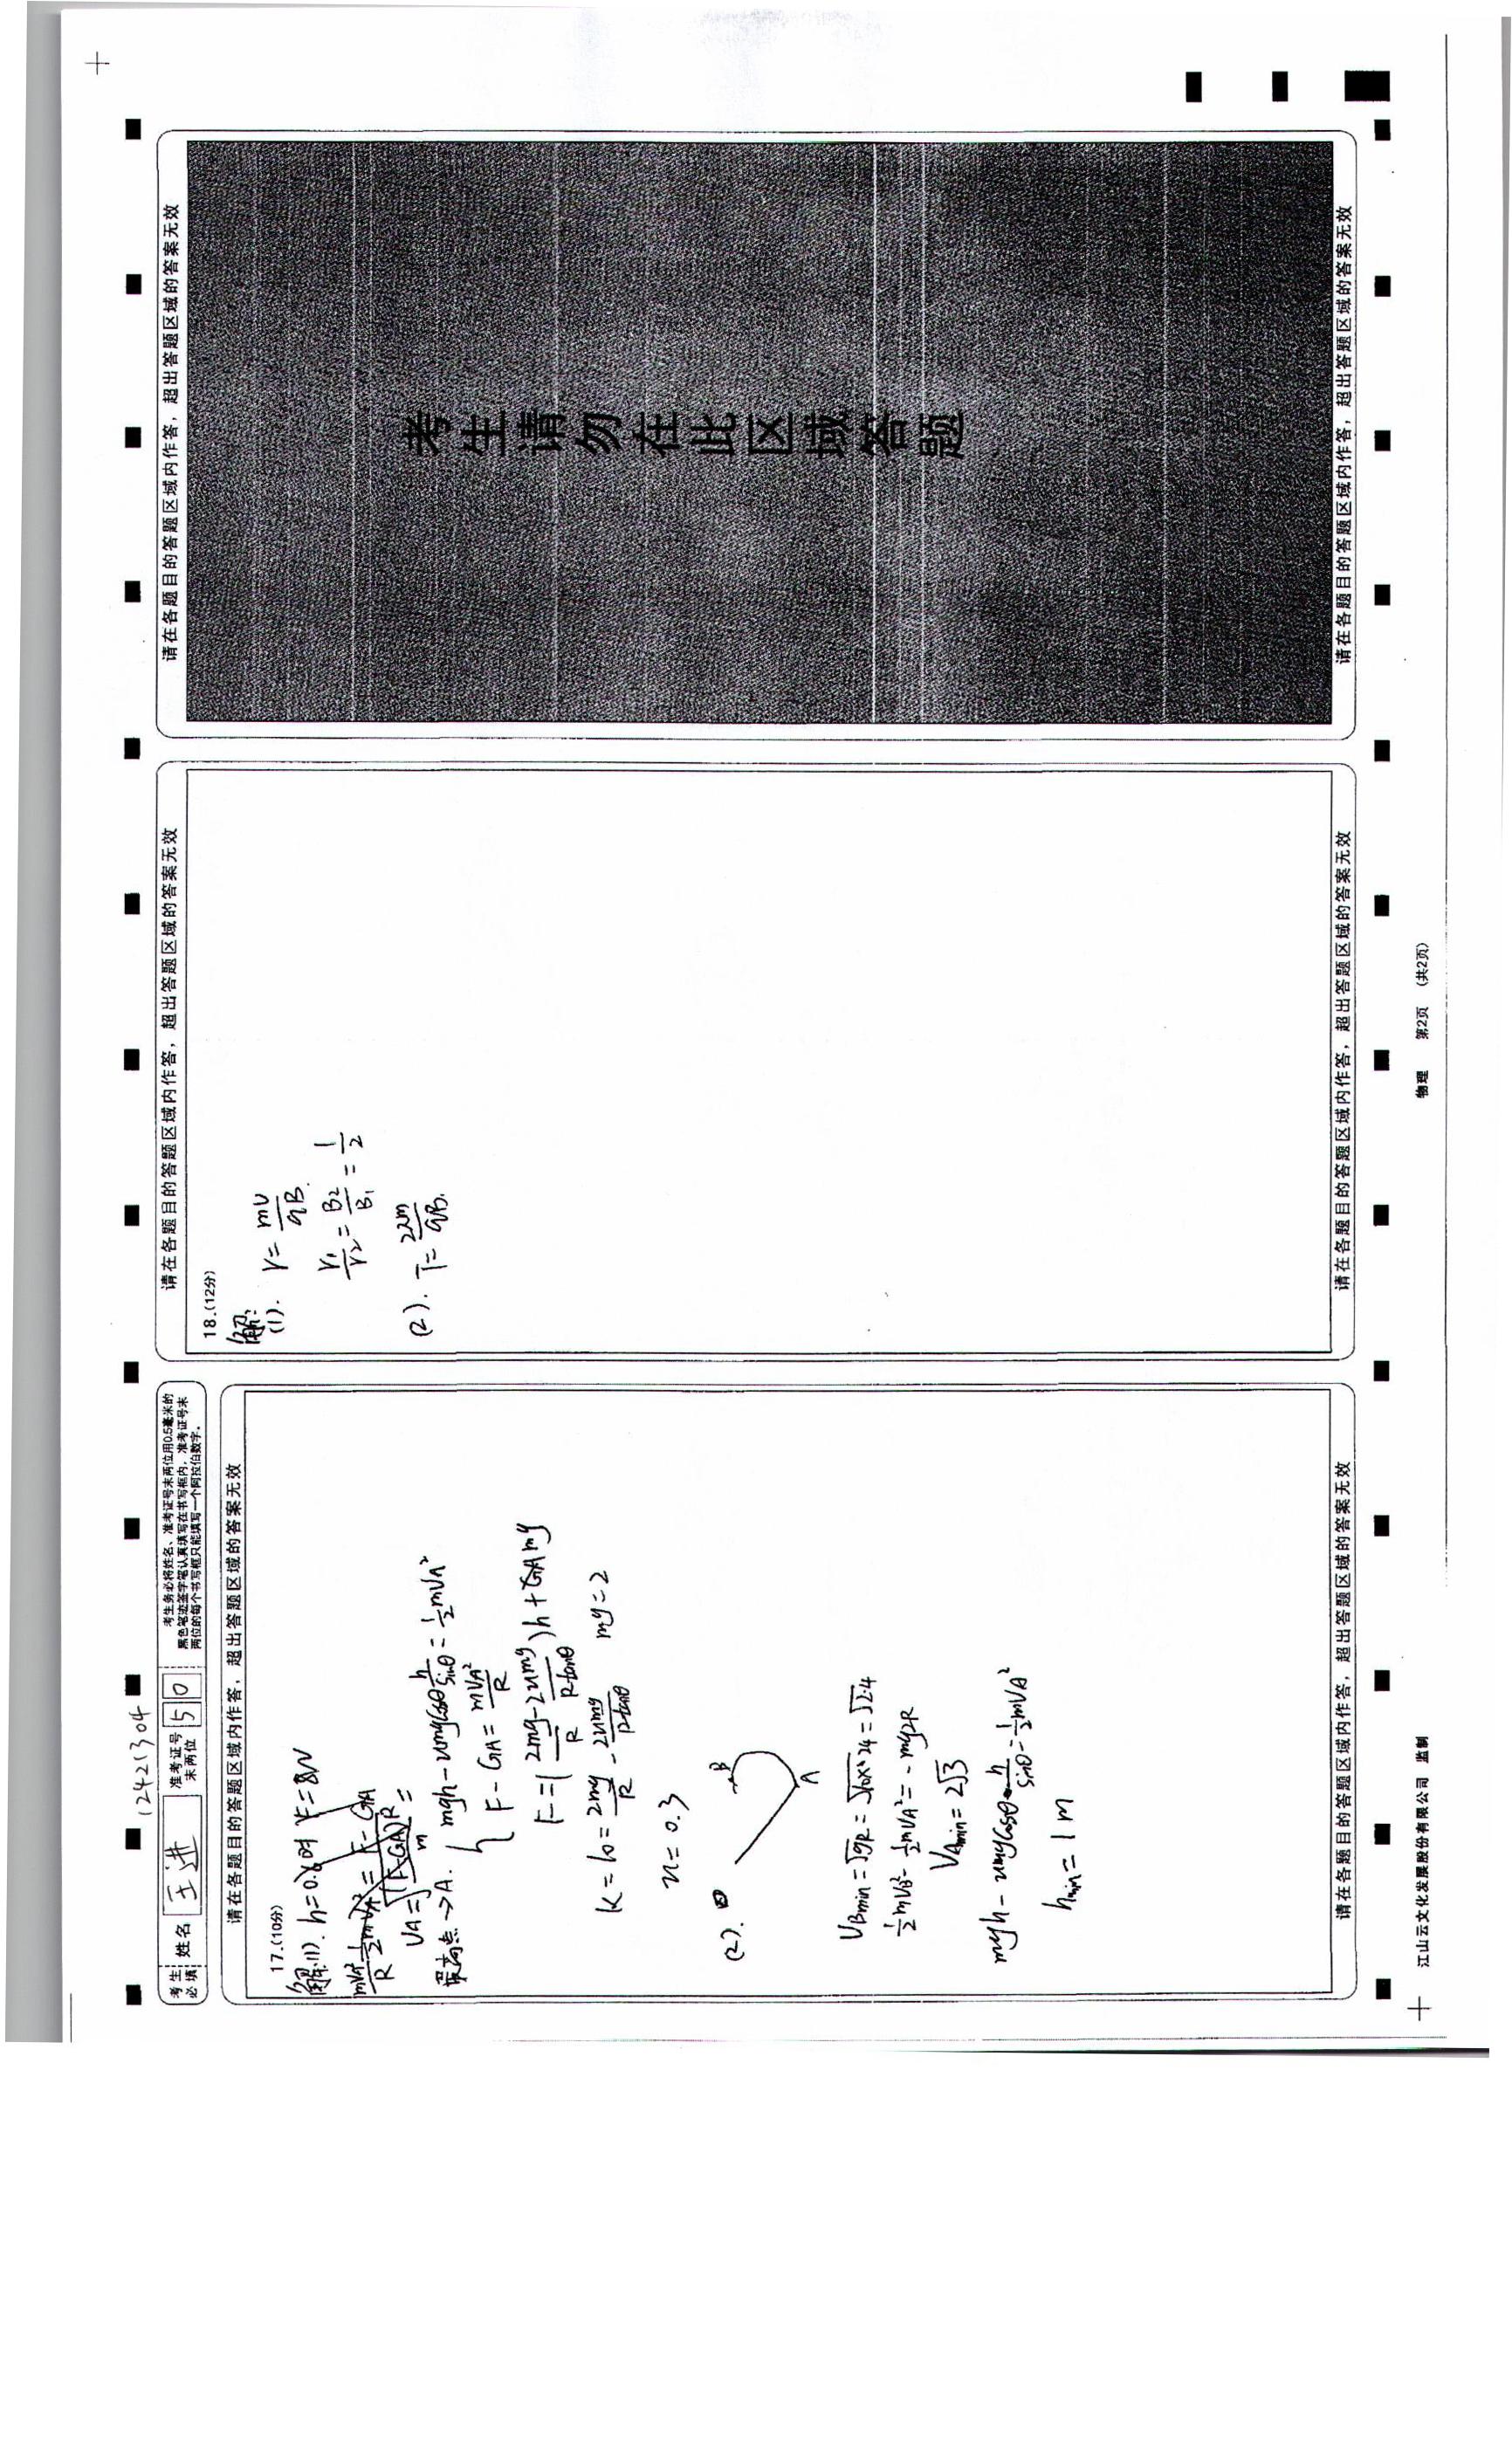 12421304
考生必填
姓名 王进
准考证号末两位 5 0
考生务必将姓名、准考证号末两位用0.5毫米的
黑色笔迹签字笔认真填写在书写框内,准考证号末
两位的每个书写框只能填写一个阿拉伯数字。
请在各题目的答题区域内作答,超出答题区域的答案无效
17.(10分)
解:(1). h=0.6时 F=8N
mVA²/R ½mVA² = F-GA
VA=√((F-GA)R/m) =
最高点→A. { mgh-umgcosθ h/sinθ = ½mVA²
F-GA = mVA²/R
F=(2mg/R - 2umg/Rtanθ)h+GAmg
K=10=2mg/R - 2umg/Rtanθ mg=2
u=0.3
(2).
B
A
VBmin=√gR=√10×·24=√2.4
½mVB²-½mVA²=-mg2R
VAmin=2√3
mgh-umgcosθ·h/sinθ=½mVA²
hmin=1m
请在各题目的答题区域内作答,超出答题区域的答案无效
请在各题目的答题区域内作答,超出答题区域的答案无效
18.(12分)
解:
(1). r=mv/qB.
r1/r2=B2/B1=1/2
(2). T=2πm/qB.
请在各题目的答题区域内作答,超出答题区域的答案无效
请在各题目的答题区域内作答,超出答题区域的答案无效
考生请勿在此区域答题
请在各题目的答题区域内作答,超出答题区域的答案无效
江山云文化发展股份有限公司 监制
物理 第2页 (共2页)